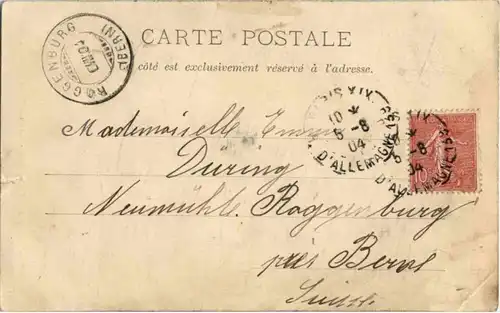 CARTE POSTALE
côté est exclusivement réservé à l'adresse.
ROGGENBURG
(BERN)
PARIS XIX
10
5 -8
04
D'ALLEMAGNE 139
5 -8
04
D'ALLEMAGNE 139
Mademoiselle Emma
During
Neumühle Roggenburg
près Berne
Suisse